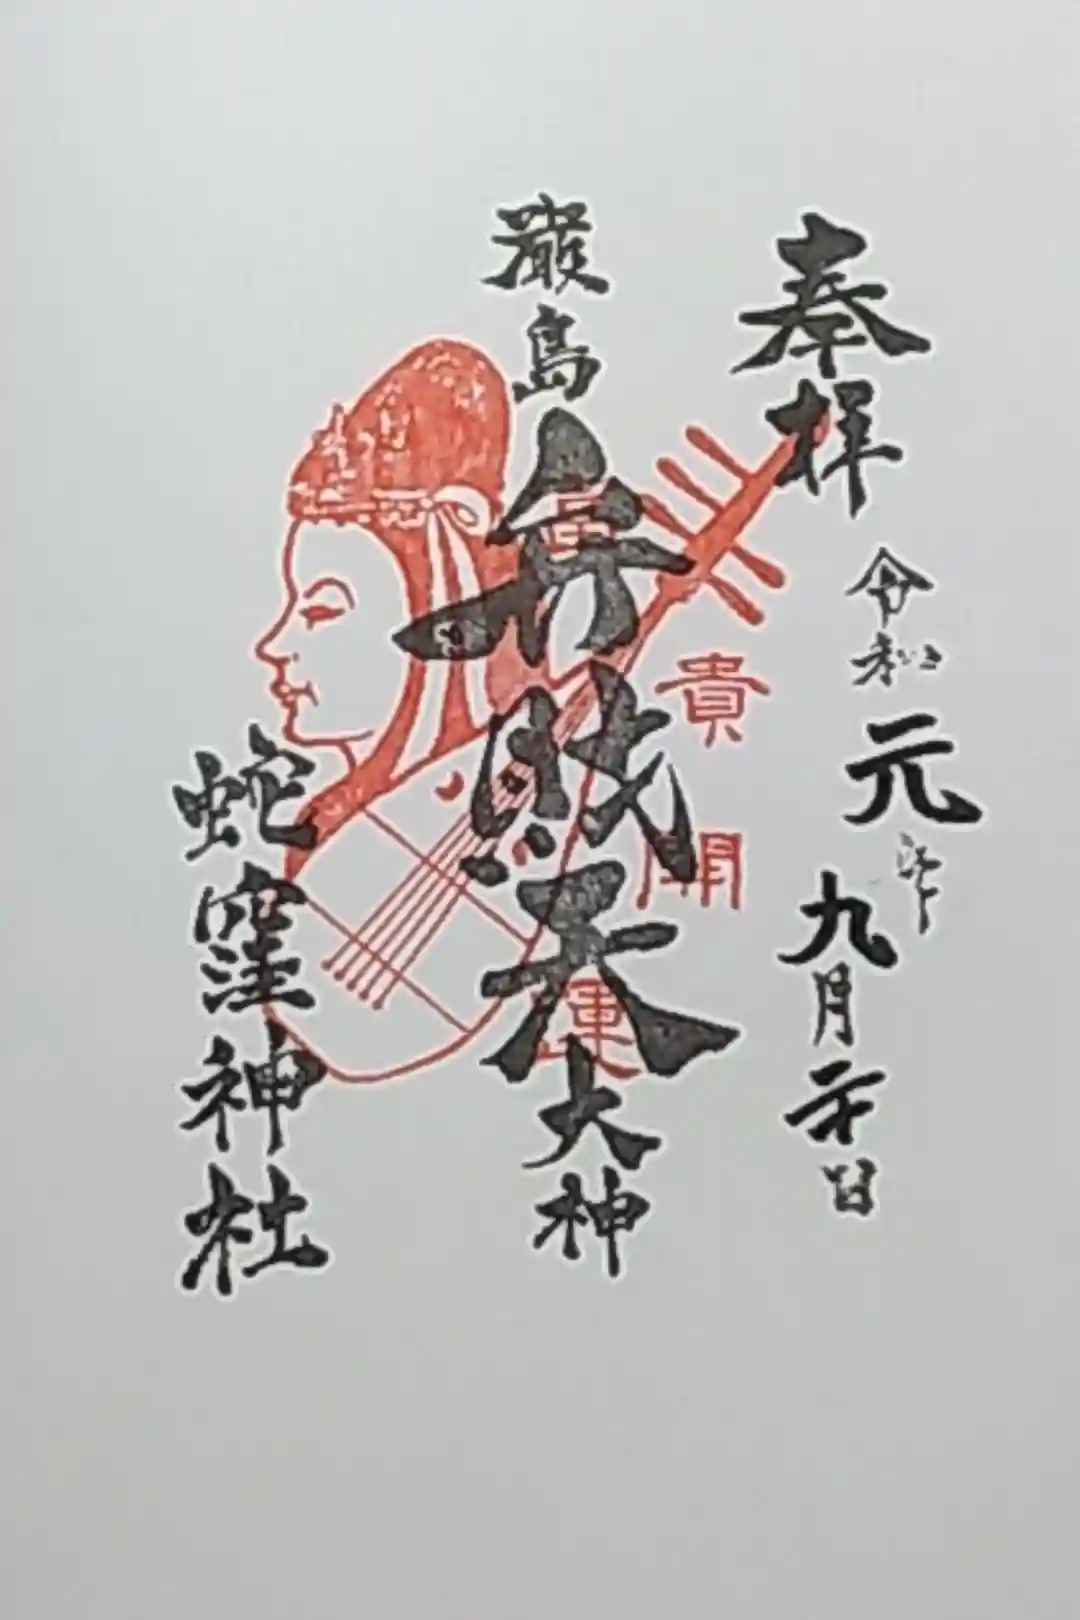 奉拝
令和元年九月日
厳島弁財天大神
富貴
開運
蛇窪神社